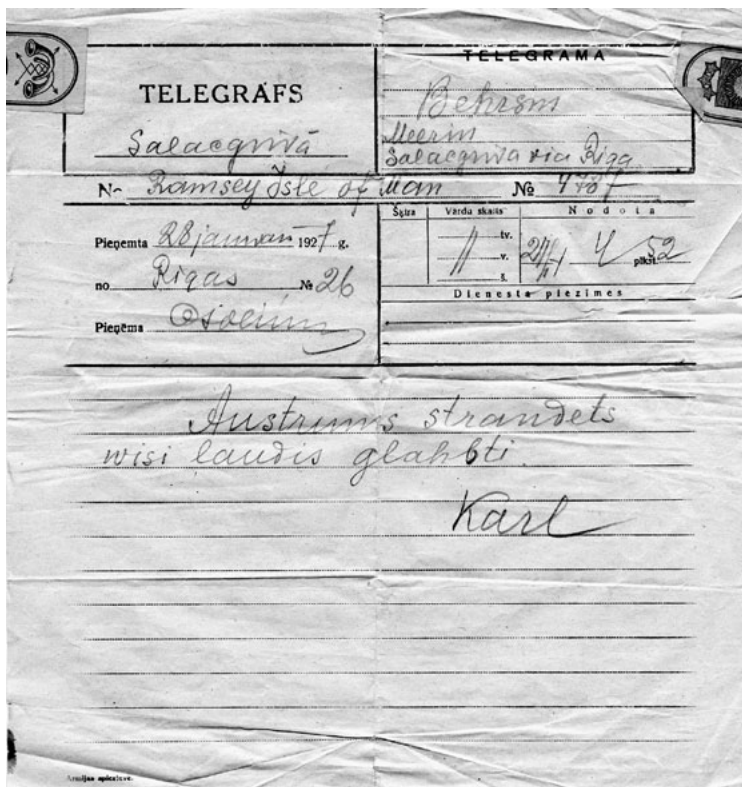 TELEGRAFS
Salacgrivā
TELEGRAMA
Behrsin
Meerin
Salacgriva via Riga
Ramsey Isle of Man № 478
Pieņemta 28 januari 1927 g.
no Rigas № 26
Pieņēma
Šķira Vārdu skaits Nodota
11 tv.
v.
š.
4 52 plkst.
Dienesta piezimes
Austrums strandets
wisi laudis glahbti
Karl
Armijas spiestuve.